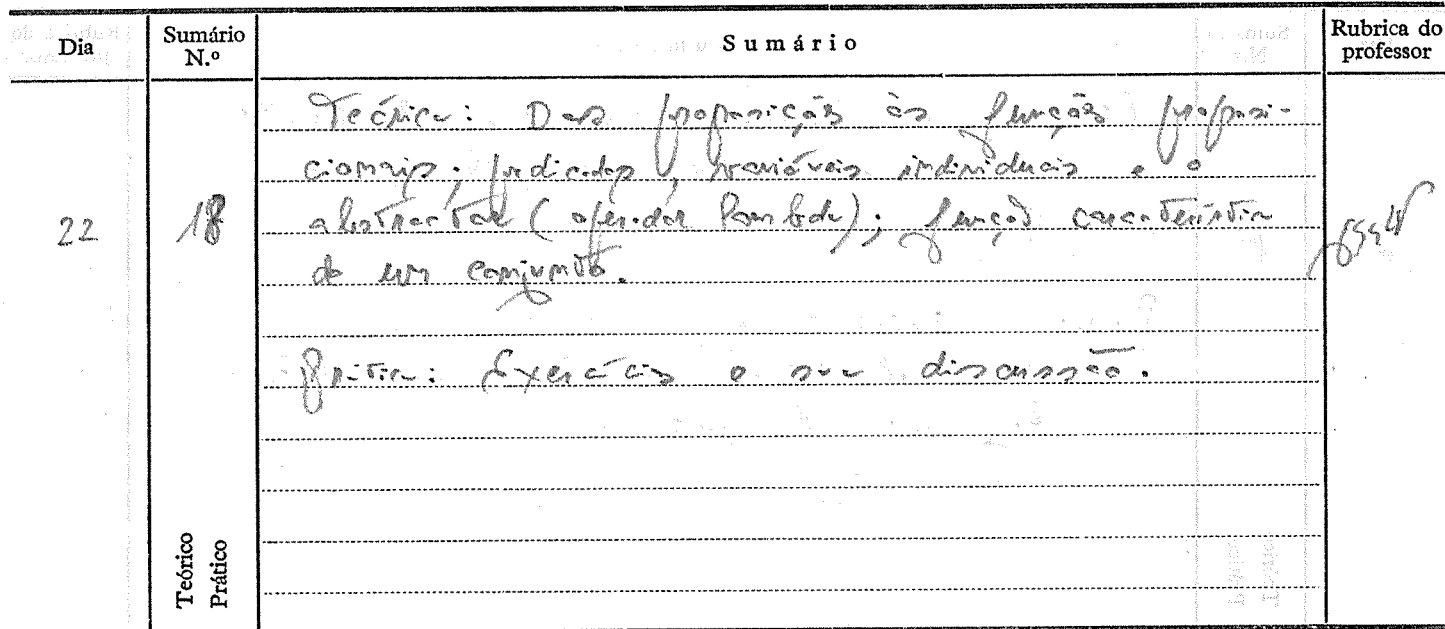 Dia
Sumário N.º
Sumário
Rubrica do professor
22
18
Teórica: Das proposições às funções proposi-
cionais; predicados, variáveis individuais e o
abstractor (operador lambda); função característica
de um conjunto.
Prática: Exercícios e sua discussão.
Teórico
Prático